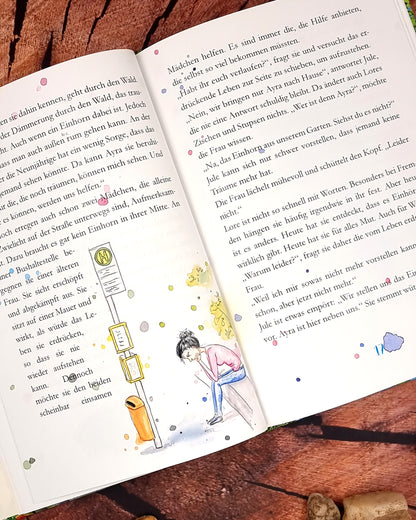 sie dahin kennen, geht durch den Wald.
der Dämmerung durch den Wald, das trau
Auch wenn ein Einhorn dabei ist. Jedoch
man auch außen rum gehen kann. An der
der Neunjährige hat ein wenig Sorge, dass das
jemand sehen könnte. Da kann Ayra sie beruhi
nur die, die noch träumen, können mich sehen. Und
es können, werden uns helfen.“
erregen auch schon zwei Mädchen, die alleine
Zwielicht auf der Straße unterwegs sind, Aufmerksam-
Dazu braucht es gar kein Einhorn in ihrer Mitte. An
Bushaltestelle be-
gegnen sie einer älteren
Frau. Sie sieht erschöpft
und abgekämpft aus. Sie
sitzt auf einer Mauer und
wirkt, als würde das Le-
ben sie erdrücken,
so dass sie nie
wieder aufstehen
kann. Dennoch
möchte sie den beiden
scheinbar einsamen
H
Mädchen helfen. Es sind immer die, die Hilfe anbieten,
die selbst so viel bekommen müssten.
„Habt ihr euch verlaufen?“, fragt sie und versucht das er-
drückende Leben zur Seite zu schieben, um aufzustehen.
„Nein, wir bringen nur Ayra nach Hause“, antwortet Jule,
die nie eine Antwort schuldig bleibt. Da ändert auch Lores
Zischen und Stupsen nichts. „Wer ist denn Ayra?“, möchte
die Frau wissen.
„Na, das Einhorn aus unserem Garten. Siehst du es nicht?“
Jule kann sich nur schwer vorstellen, dass jemand keine
Träume mehr hat.
Die Frau lächelt mühevoll und schüttelt den Kopf. „Leider
nicht.“
Lore ist nicht so schnell mit Worten. Besonders bei Fremden
hängen sie häufig irgendwie in ihr fest. Aber heute
ist es anders. Heute hat sie entdeckt, dass es Einhörner
wirklich gibt. Heute hat sie für alles Mut. Auch für W
„Warum leider?“, fragt sie daher die vom Leben erd
Frau.
„Weil ich mir sowas nicht mehr vorstellen kann.
schon, aber jetzt nicht mehr.“
Jule ist etwas empört: „Wir stellen uns das
vor. Ayra ist hier neben uns.“ Sie stemmt wüt
17